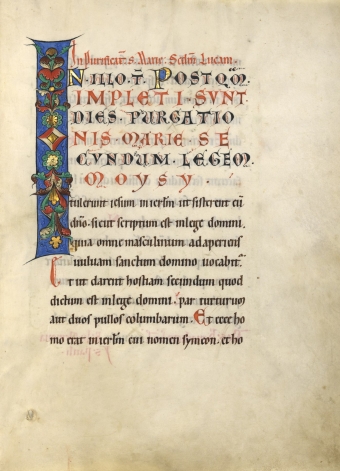 In Purificat. s. Marie. Scdm Lucam.
IN ILLO T. POSTQM
IMPLETI SUNT
DIES PURGATIO
NIS MARIE SE
CUNDUM LEGEM
MOYSY.
tulerunt iesum in ierlm ut sisterent eu
dno. sicut scriptum est in lege domini.
quia omne masculinum adaperiens
vulvam sanctum domino vocabit.
Et ut darent hostiam secundum quod
dictum est in lege domini. par turturum
aut duos pullos columbarum. Et ecce ho
mo erat in ierlm cui nomen symeon. et ho